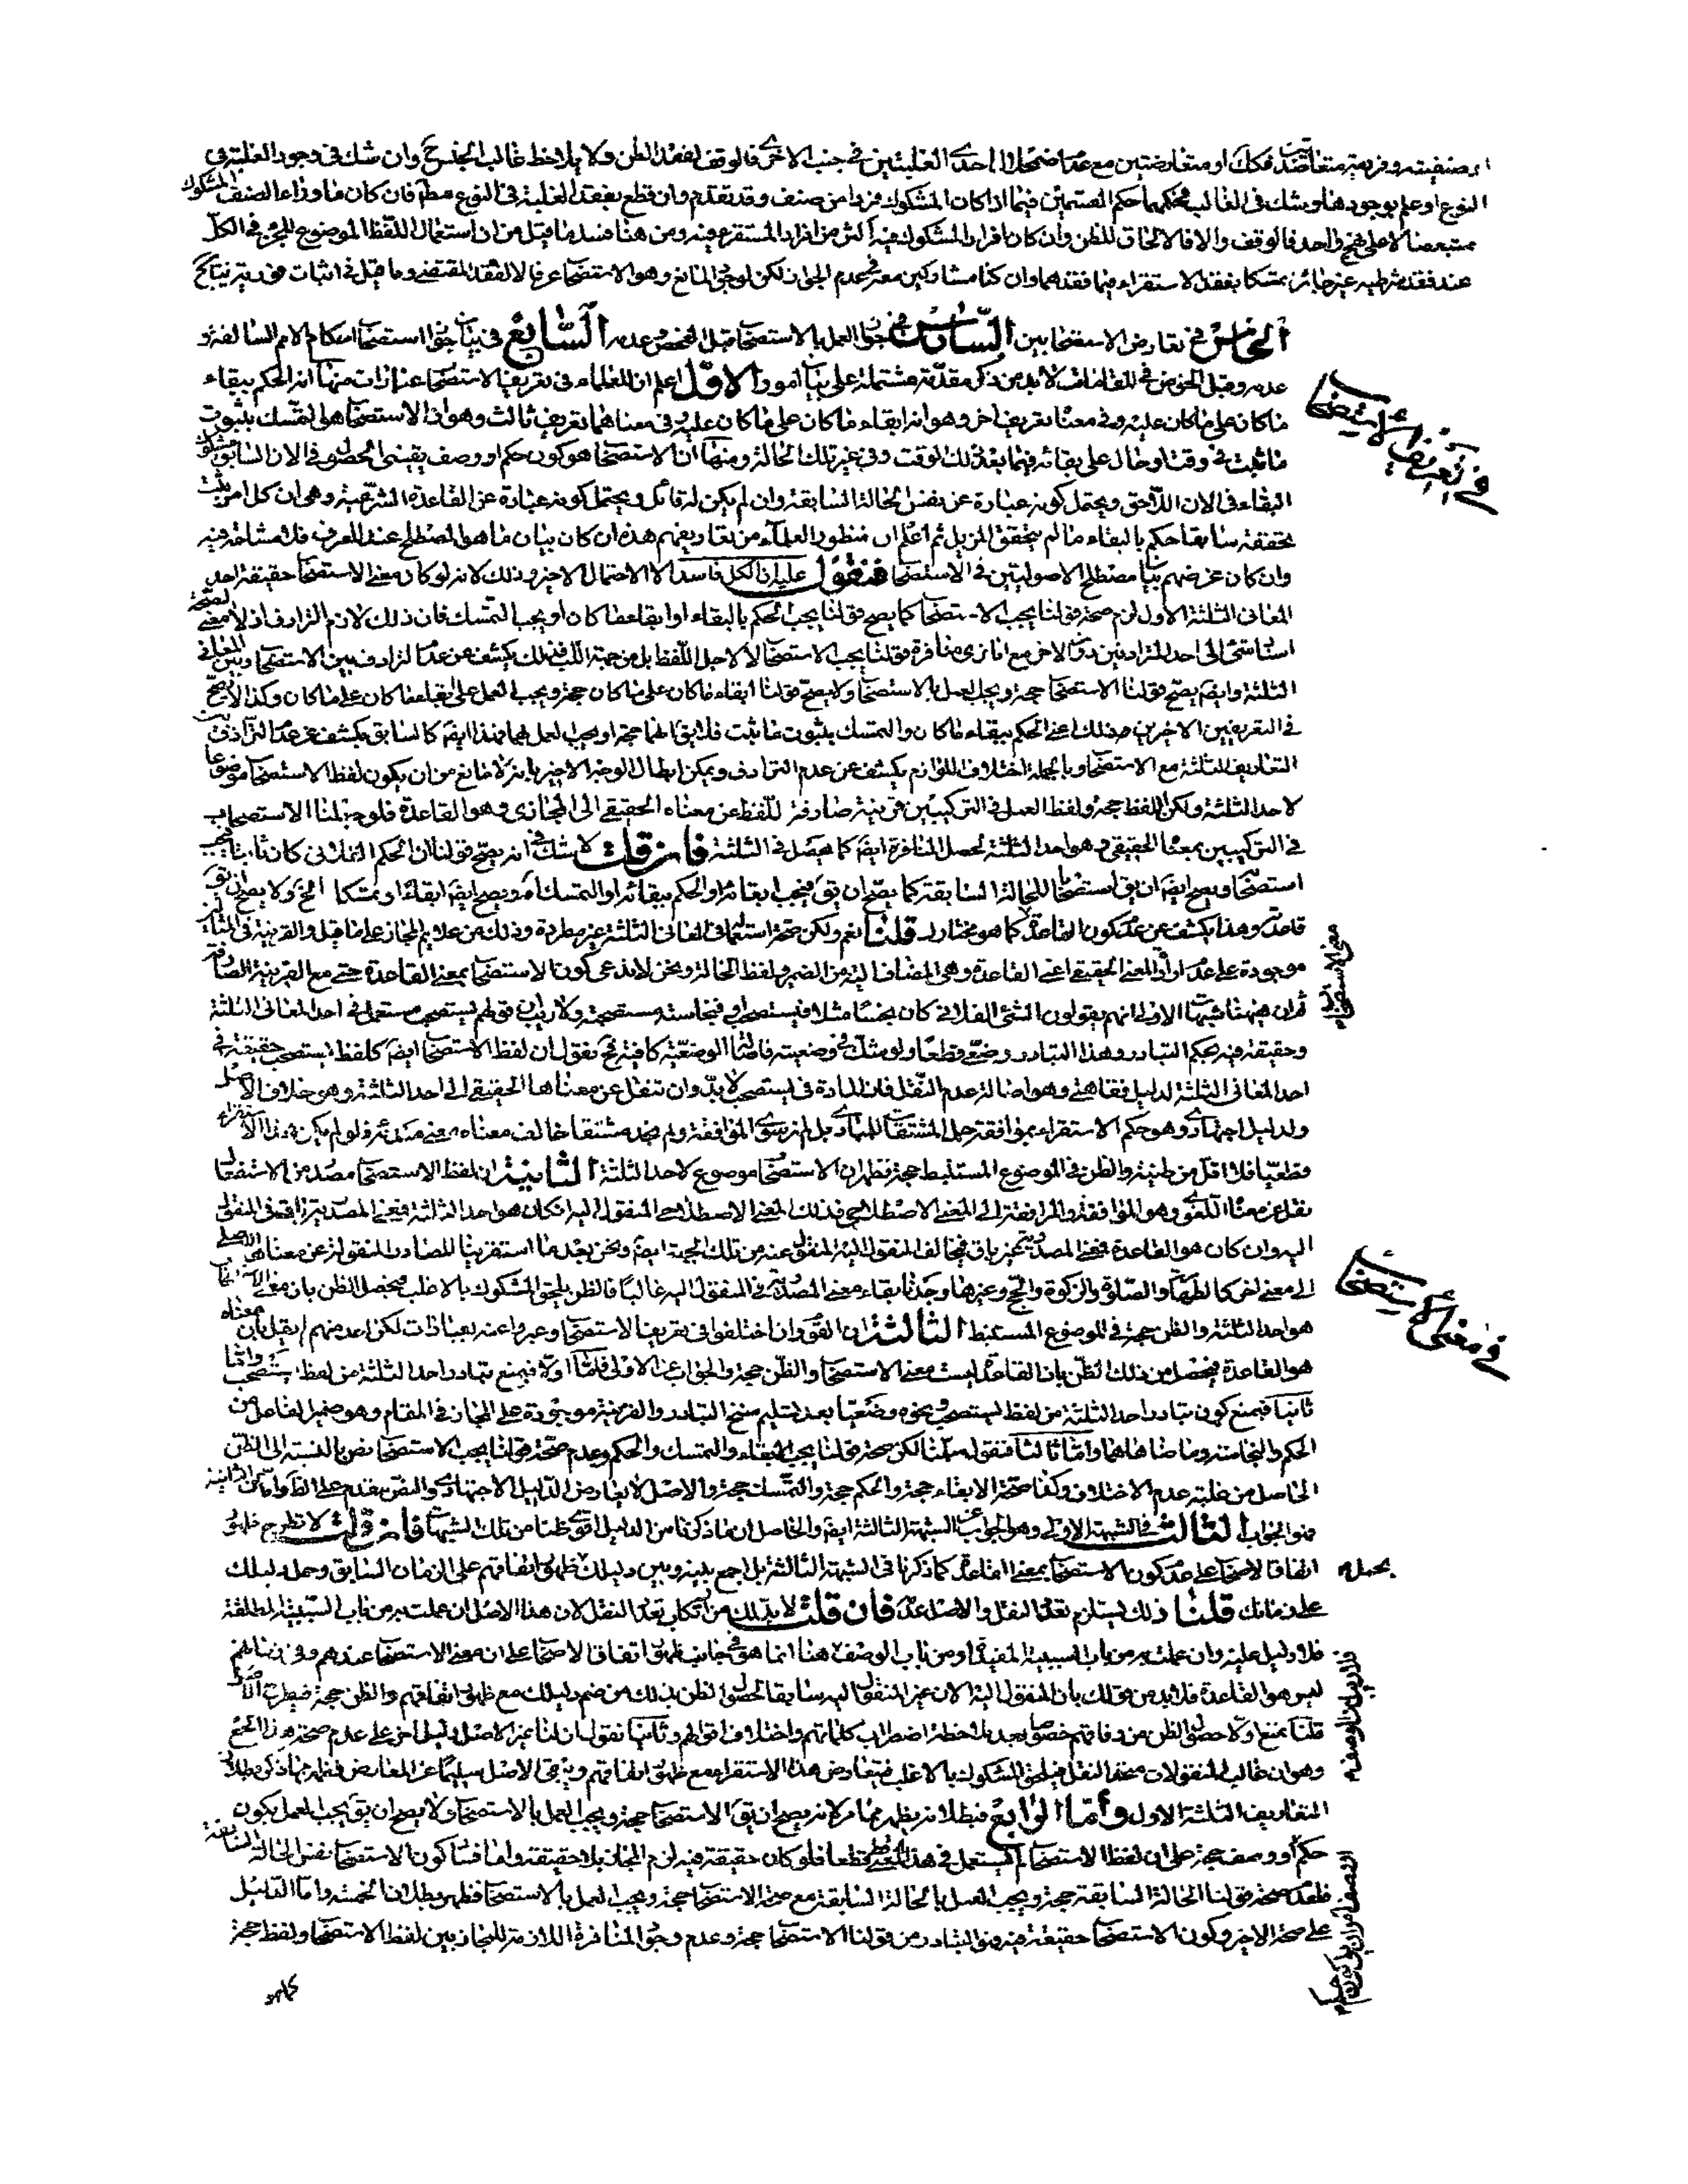 النوع او علم بوجودها وشك في الغالب فحكمها حكم القسمين فيما اذا كان المشكوك فردا من صنف وقد تقدم وان قطع بفقد الغلبة في النوع مطلقا فان كان ما وراء الصنف المشكوك
متبعضا لا على نهج واحد فالوقف والا فالالحاق للظن وان كان افراد المشكوك فيه اكثر من افراد المستقرء فيه ومن هنا فسد ما قيل من ان استعمال اللفظ الموضوع للجزء في الكل
عند فقد شرطيه غير جائز تمسكا بفقد الاستقراء فيما فقدهما وان كنا مشاركين معه في عدم الجواز لكن لوجود المانع وهو الاستقباح عرفا لا لفقد المقتضي وما قيل في اثبات
الخامس في تعارض الاستصحابين السادس في جواز العمل بالاستصحاب قبل الفحص وعدمه السابع في بيان جواز استصحاب احكام الامم السالفة و
عدمه وقبل الخوض في المقامات لا بد من ذكر مقدمة مشتملة على بيان امور الاول اعلم ان للعلماء في تعريف الاستصحاب عبارات منها انه الحكم ببقاء
ما كان على ما كان عليه وفي معناه تعريف اخر وهو انه ابقاء ما كان على ما كان عليه وفي معناهما تعريف ثالث وهو ان الاستصحاب هو التمسك بثبوت
ما ثبت في وقت او حال على بقائه فيما بعد ذلك الوقت وفي غير تلك الحالة ومنها ان الاستصحاب هو كون حكم او وصف يقيني الحصول في الان السابق مشكوك
البقاء في الان اللاحق ويحتمل كونه عبارة عن نفس الحالة السابقة وان لم يكن له قائل ويحتمل كونه عبارة عن القاعدة الشرعية وهي ان كل امر ثبت
تحققه سابقا حكم بالبقاء ما لم يتحقق المزيل ثم اعلم ان منظور العلماء من تعاريفهم هذه ان كان بيان ما هو المصطلح عند العرف فلا مشاحة فيه
وان كان غرضهم بيان مصطلح الاصوليين في الاستصحاب فنقول عليه ان الكل فاسد الا الاحتمال الاخير وذلك لانه لو كان معنى الاستصحاب حقيقة احد
المعاني الثلثة الاول لزم صحة قولنا يجب الاستصحاب كما يصح قولنا يجب الحكم بالبقاء او ابقاء ما كان او يجب التمسك فان ذلك لازم الترادف اذ لا معنى لصحة
اسناد شئ الى احد المترادفين دون الاخر مع انا نرى منافرة قولنا يجب الاستصحاب لا لاجل اللفظ بل من جهة اللب فذلك يكشف عن عدم الترادف بين الاستصحاب وبين المعاني
الثلثة وايضا يصح قولنا الاستصحاب حجة ويجب العمل بالاستصحاب ولا يصح قولنا ابقاء ما كان على ما كان حجة ويجب العمل على ابقاء ما كان على ما كان وكذا لا يصح
في التعريفين الاخرين
التعاريف الثلثة مع الاستصحاب وبالجملة اختلاف اللوازم يكشف عن عدم الترادف ويمكن ابطال الوجه الاخير بانه لا مانع من ان يكون لفظ الاستصحاب موضوعا
لاحد الثلثة ولكن لفظ حجة ولفظ العمل في التركيبين قرينة صارفة للفظ عن معناه الحقيقي الى المجازي وهو القاعدة فلو حملنا الاستصحاب
في التركيبين بمعناه الحقيقي وهو احد الثلثة لحصل المنافرة ايضا كما يحصل في الثلثة فان قلت لا شك في انه يصح قولنا ان الحكم الفلاني كان ثابتا فيجب
قلنا نعم ولكن صحة استعماله في المعاني الثلثة غير مطردة وذلك من علائم المجاز على ما قيل والقرينة في المثال
موجودة على عدم ارادة المعنى الحقيقي اعني القاعدة وهي المضاف اليه من الضمير ولفظ الحالة ونحن لا ندعي كون الاستصحاب بمعنى القاعدة حتى مع القرينة الصارفة
ثم ان هيهنا شبهات الاولى انهم يقولون الشئ الفلاني كان نجسا مثلا فيستصحب او فنجاسته مستصحبة ولا ريب ان قولهم يستصحب مستعمل في احد المعاني الثلثة
وحقيقة فيه بحكم التبادر وهذا التبادر وضعي قطعا ولو شك في وضعيته فاصالة الوضعية كافية فح نقول ان لفظ الاستصحاب ايضا كلفظ يستصحب حقيقة في
احد المعاني الثلثة لدليل فقاهتي وهو اصالة عدم النقل فان المادة في يستصحب لا بد وان تنقل عن معناها الحقيقي الى احد الثلثة وهو خلاف الاصل
ولدليل اجتهادي وهو حكم الاستقراء بموافقة جل المشتقات للمبادي بل لم نر سوى الموافقة ولم نجد مشتقا خالف معناه معنى مبدئه ولو لم يكن هذا الاستقراء
قطعيا فلا اقل من ظنيته والظن في الموضوع المستنبط حجة فظهر ان الاستصحاب موضوع لاحد الثلثة الثانية ان لفظ الاستصحاب مصدر من الاستفعال
نقل عن معناه اللغوي وهو الموافقة والمرافقة الى المعنى الاصطلاحي فذلك المعنى الاصطلاحي المنقول اليه ان كان هو احد الثلثة فمعنى المصدرية باق في المنقول
اليه وان كان هو القاعدة فمعنى المصدرية غير باق فيخالف المنقول اليه المنقول عنه من تلك الجهة ايضا ونحن بعد ما استقرينا المصادر المنقولة عن معناها الاصلي
الى معنى اخر كالطهارة والصلوة والزكوة والحج وغيرها وجدنا بقاء معنى المصدرية في المنقول اليه غالبا فالظن يلحق المشكوك بالاغلب فيحصل الظن بان معنى الاستصحاب
هو احد الثلثة والظن حجة في الموضوع المستنبط الثالثة ان القوم وان اختلفوا في تعريف الاستصحاب وعبروا عنه بعبارات لكن احد منهم لم يقل بان معناه
هو القاعدة فيحصل من ذلك الظن بان القاعدة ليست معنى الاستصحاب والظن حجة والجواب عن الاولى فاما اولا فبمنع تبادر احد الثلثة من لفظ يستصحب واما
ثانيا فبمنع كون تبادر احد الثلثة من لفظ يستصحب ونحوه وضعيا بعد تسليم سنخ التبادر والقرينة موجودة على المجاز في المقام وهو ضمير الفاعل من
الحكم والنجاسة وما ضاهاهما واما ثالثا فنقول سلمنا لكن صحة قولنا يجب الابقاء والتمسك والحكم وعدم صحة قولنا يجب الاستصحاب نص بالنسبة الى الظن
الحاصل من غلبة عدم الاختلاف وكذا صحة الابقاء حجة والحكم حجة والتمسك حجة والاصل لا يعارض الدليل الاجتهادي والنص يقدم على الظاهر واما عن الثانية
فهو الجواب الثالث في الشبهة الاولى وهو الجواب عن الشبهة الثالثة ايضا والحاصل ان ما ذكرنا من الدليل اقوى ظنا من تلك الشبهات فان قلت لا تطرح ظهور
اتفاق الاصحاب على عدم كون الاستصحاب بمعنى القاعدة كما ذكرنا في الشبهة الثالثة بل اجمع بينه وبين دليلك بحمل ظهور اتفاقهم على الزمان السابق وحمل دليلك
على زمانك قلنا ذلك يستلزم تعدد النقل والاصل عدمه فان قلت لا بد لك من ارتكاب تعدد النقل لان هذا الاصل ان عملت به من باب السببية المطلقة
فلا دليل عليه وان عملت به من باب السببية المقيدة او من باب الوصف فهنا انما هو في جانب ظهور اتفاق الاصحاب على ان معنى الاستصحاب عندهم وفي زمانهم
ليس هو القاعدة فلا بد من قولك بان المنقول اليه الان غير المنقول اليه سابقا لحصول الظن بذلك من ضم دليلك مع ظهور اتفاقهم والظن حجة
قلنا نمنع اولا حصول الظن من وفاقهم خصوصا بعد ملاحظة اضطراب كلماتهم واختلاف اقوالهم وثانيا نقول ان لنا غير الاصل دليل اخر على عدم صحة هذا الجمع
وهو ان غالب المنقولات متحد النقل فيلحق المشكوك بالاغلب فيتعارض هذا الاستقراء مع ظهور اتفاقهم ويبقى الاصل سليما عن المعارض فظهر مما ذكر بطلان
التعاريف الثلثة الاول واما الرابع فبطلانه يظهر مما مر لانه يصح ان يق الاستصحاب حجة ويجب العمل بالاستصحاب ولا يصح ان يق يجب العمل بكون
حكم او وصف حجة على ان لفظ الاستصحاب لم يستعمل في هذا المعنى قطعا فلو كان حقيقة فيه لزم المجاز بلا حقيقة واما فساد كون الاستصحاب نفس الحالة السابقة
فلعدم صحة قولنا الحالة السابقة حجة ويجب العمل بالحالة السابقة مع صحة الاستصحاب حجة ويجب العمل بالاستصحاب فظهر بطلان الخمسة واما الدليل
على صحة الاخير وكون الاستصحاب حقيقة فيه فهو التبادر من قولنا الاستصحاب حجة وعدم وجود المنافرة اللازمة للمجاز بين لفظ الاستصحاب ولفظ حجة
في تعريف الاستصحاب
معنى الاستصحاب
في معنى الاستصحاب